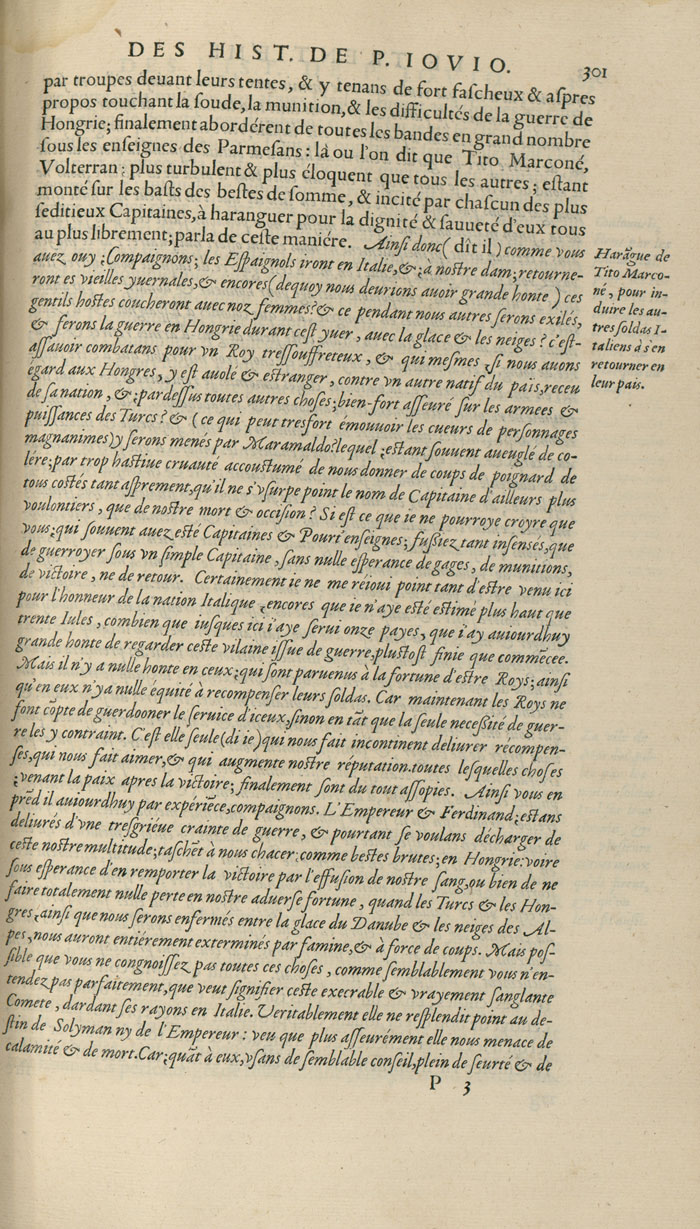 DES HIST. DE P. IOVIO.
301
par troupes deuant leurs tentes, & y tenans de fort faſcheux & aſpres
propos touchant la ſoude, la munition, & les difficultés de la guerre de
Hongrie; finalement abordérent de toutes les bandes en grand nombre
ſous les enſeignes des Parmeſans: là ou l'on dit que Tito Marconé,
Volterran; plus turbulent & plus éloquent que tous les autres; eſtant
monté ſur les baſts des beſtes de ſomme, & incité par chaſcun des plus
ſeditieux Capitaines, à haranguer pour la dignité & ſauueté d'eux tous
au plus librement; parla de ceſte maniére. Ainſi donc (dit il) comme vous
auez ouy ;Compaignons; les Eſpaignols iront en Italie,& ;à noſtre dam; retourne-
ront es vieilles yuernales,& encores (dequoy nous deurions auoir grande honte) ces
gentils hoſtes coucheront auec noz femmes? & ce pendant nous autres ſerons exilés,
& ferons la guerre en Hongrie durant ceſt yuer, auec la glace & les neiges? c'eſt-
aſſauoir combatans pour vn Roy treſſouffreteux, & qui meſmes ;ſi nous auons
egard aux Hongres, y eſt auole & eſtranger, contre vn autre natif du païs, receu
de ſa nation, & ;pardeſſus toutes autres choſes; bien-fort aſſeuré ſur les armees &
puiſſances des Turcs? & (ce qui peut tresfort émouuoir les cueurs de perſonnages
magnanimes) y ſerons menés par Maramaldo? lequel ;eſtant ſouuent aueuglé de co-
lére; par trop haſtiue cruauté accouſtumé de nous donner de coups de poignard de
tous coſtés tant aſprement, qu'il ne s'vſurpe point le nom de Capitaine d'ailleurs plus
voulontiers, que de noſtre mort & occiſion? Si eſt ce que ie ne pourroye croyre que
vous; qui ſouuent auez eſté Capitaines & Pourt'enſeignes; fuſſiez tant inſensés, que
de guerroyer ſous vn ſimple Capitaine, ſans nulle eſperance de gages, de munitions,
de victoire, ne de retour. Certainement ie ne me réioui point tant d'eſtre venu ici
pour l'honneur de la nation Italique ;encores que ie n'aye eſté eſtimé plus haut que
trente Iules, combien que iuſques ici i'aye ſerui onze payes, que i'ay auiourdhuy
grande honte de regarder ceſte vilaine iſſue de guerre, pluſtoſt finie que commēcee.
Mais il n'y a nulle honte en ceux; qui ſont paruenus à la fortune d'eſtre Roys; ainſi
qu'en eux n'y a nulle équité a recompenſer leurs ſoldas. Car maintenant les Roys ne
font cōpte de guerdooner le ſeruice d'iceux, ſinon en tāt que la ſeule neceſsité de guer-
re les y contraint. C'eſt elle ſeule (di ie) qui nous fait incontinent deliurer recompen-
ſes, qui nous fait aimer, & qui augmente noſtre réputation. toutes leſquelles choſes
;venant la paix apres la victoire; finalement ſont du tout aſſopies. Ainſi vous en
prēd il auiourdhuy par expériēce, compaignons. L'Empereur & Ferdinand; eſtans
deliurés d'vne treſgriéue crainte de guerre, & pourtant ſe voulans décharger de
ceſte noſtre multitude; taſchēt à nous chacer; comme beſtes brutes; en Hongrie: voire
ſous eſperance d'en remporter la victoire par l'effuſion de noſtre ſang, ou bien de ne
faire totalement nulle perte en noſtre aduerſe fortune, quand les Turcs & les Hon-
gres ;ainſi que nous ſerons enfermés entre la glace du Danube & les neiges des Al-
pes, nous auront entiérement exterminés par famine, & à force de coups. Mais poſ-
ſible que vous ne congnoiſſez pas toutes ces choſes, comme ſemblablement vous n'en-
tendez pas parfaitement, que veut ſignifier ceſte execrable & vrayement ſanglante
Comete, dardant ſes rayons en Italie. Veritablement elle ne reſplendit point au de-
ſtin de Solyman ny de l'Empereur: veu que plus aſſeurément elle nous menace de
calamité & de mort. Car; quāt à eux, vſans de ſemblable conſeil, plein de ſeurté & de
P 3
Harāgue de
Tito Marco-
né, pour in-
duire les au-
tres ſoldas I-
taliens à s'en
retourner en
leur païs.